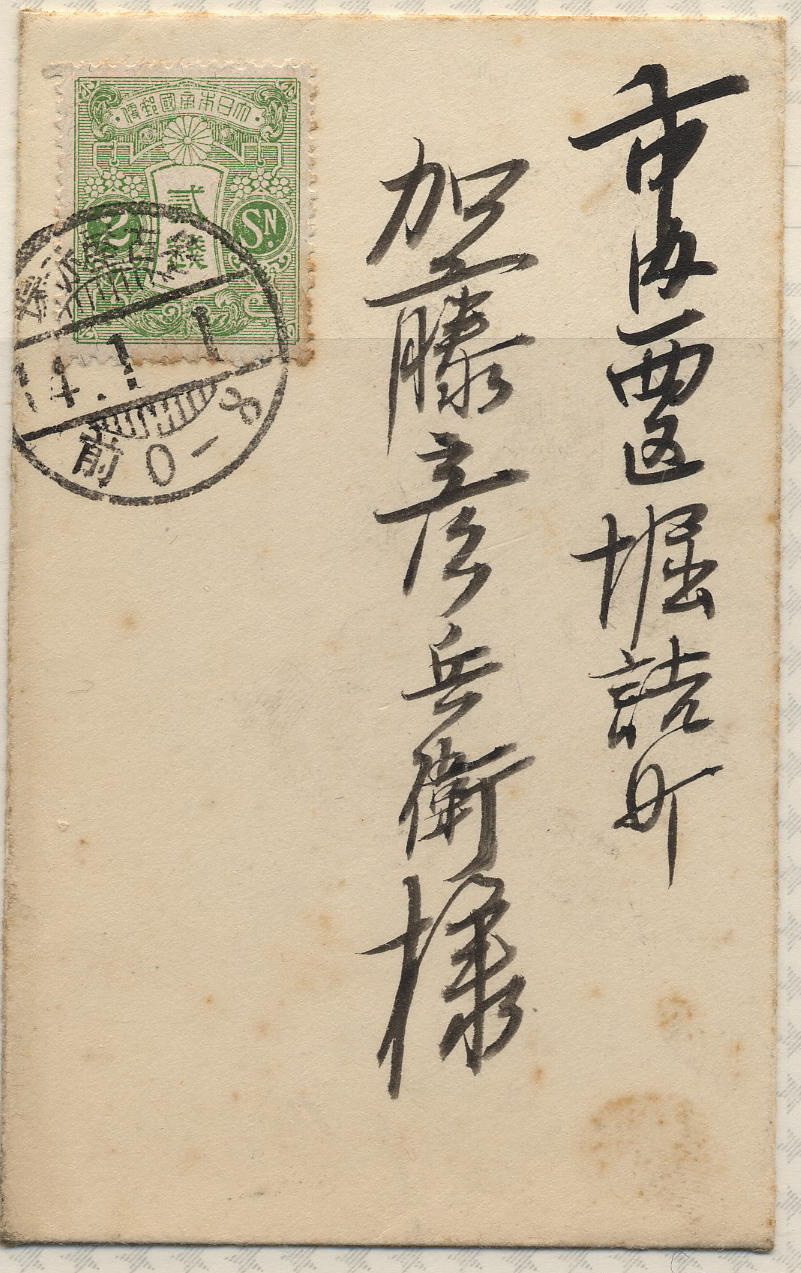 市内西区堀詰町
加藤彦兵衛様
大日本帝國郵便
貳錢
2 SN.
14.1.1
前0-8